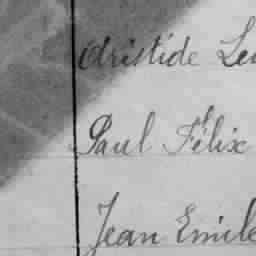 Aristide
Paul Félix
Jean Emile